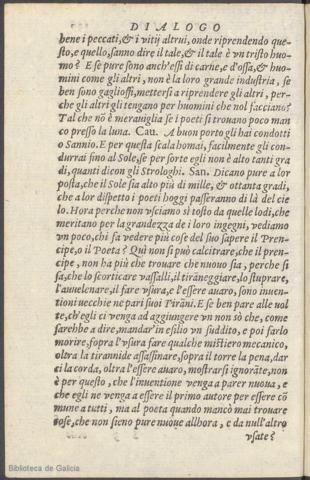 DIALOGO
bene i peccati, & i vitij altrui, onde riprendendo que-
sto, e quello, sanno dire il tale, & il tale è vn tristo huo
mo? E se pure sono anch'essi di carne, e d'ossa, & huo-
mini come gli altri, non è la loro grande industria, se
ben sono gaglioffi, mettersi a riprendere gli altri, per-
che gli altri gli tengano per huomini che nol facciano?
Tal che nō è merauiglia se i poeti si trouano poco man
co presso la luna. Cau. A buon porto gli hai condotti
o Sannio. E per questa scala homai, facilmente gli con-
durrai fino al Sole, se per sorte egli non è alto tanti gra
di, quanti dicon gli Strologhi. San. Dicano pure a lor
posta, che il Sole sia alto più di mille, & ottanta gradi,
che a lor dispetto i poeti hoggi passeranno di là del cie
lo. Hora perche non vsciamo sì tosto da quelle lodi, che
meritano per la grandezza de i loro ingegni, vediamo
vn poco, chi fa vedere più cose del suo sapere il Pren-
cipe, o il Poeta? Quì non si può calcitrare, che il pren-
cipe, non ha più che trouare che nuouo sia, perche si
sa, che lo scorticare vassalli, il tiranneggiare, lo stuprare,
l'auuelenare, il far vsura, e l'essere auaro, sono inuen-
tioni vecchie ne pari suoi Tirāni. E se ben pare alle vol
te, ch'egli ci venga ad aggiungere vn non sò che, come
sarebbe a dire, mandar'in esilio vn suddito, e poi farlo
morire, sopra l'vsura fare qualche mistiero mecanico,
oltra la tirannide assassinare, sopra il torre la pena, dar
ci la corda, oltra l'essere auaro, mostrarsi ignorāte, non
è per questo, che l'inuentione venga a parer nuoua, e
che egli ne venga a essere il primo autore per essere cō
mune a tutti, ma al poeta quando mancò mai trouare
cose, che non sieno pure nuoue allhora, e da null'altro
vsate?
Biblioteca de Galicia